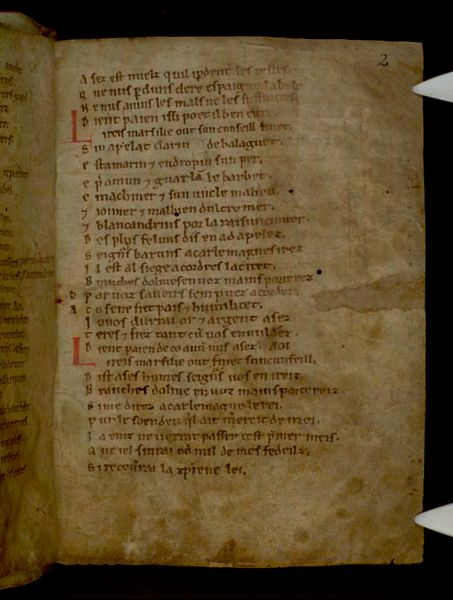 2
A sez est mielz qu il i pdent les testes.
Q ue nus pduns clere espaigne la bele
N e nus aiuns les mals ne les suffraites
D ient paien issi poet il ben estre
L i reis marsilie out sun cunseill finet.
S in apelat clarin de balaguet.
e stamarin ⁊ eudropin sun per.
e p̃amun ⁊ guarlã le barbet.
e machiner ⁊ sun uncle maheu.
⁊ ioimer ⁊ malbien dultre mer.
⁊ blancandrins por la raisun cunter.
D es plus feluns dis en ad apelez.
S eignũs baruns a carlemagnes irez
I l est al siege a cordres la citet.
B ranches dolives en voz mains porterez
p or voz saveirs sem puez acorder
A co senefiet pais ⁊ humilitet.
I o vos durrai or ⁊ argent asez
T eres ⁊ fiez tant cũ vos en vuldrez.
D ient paien de co avũ nus asez. Aoi
L i reis marsilie out finet sun cunseill,
D ist a ses humes seignũs vos en ireiz.
B ranches dolive en voz mains portereiz
S i me direz a carlemagne le rei.
p ur le soen deu q̃l ait mercit de mei.
I a einz ne verrat passer cest p̃mer meis.
Q ue iel sivrai od mil de mes fedeilz.
S i recevrai la xp̃iene lei.